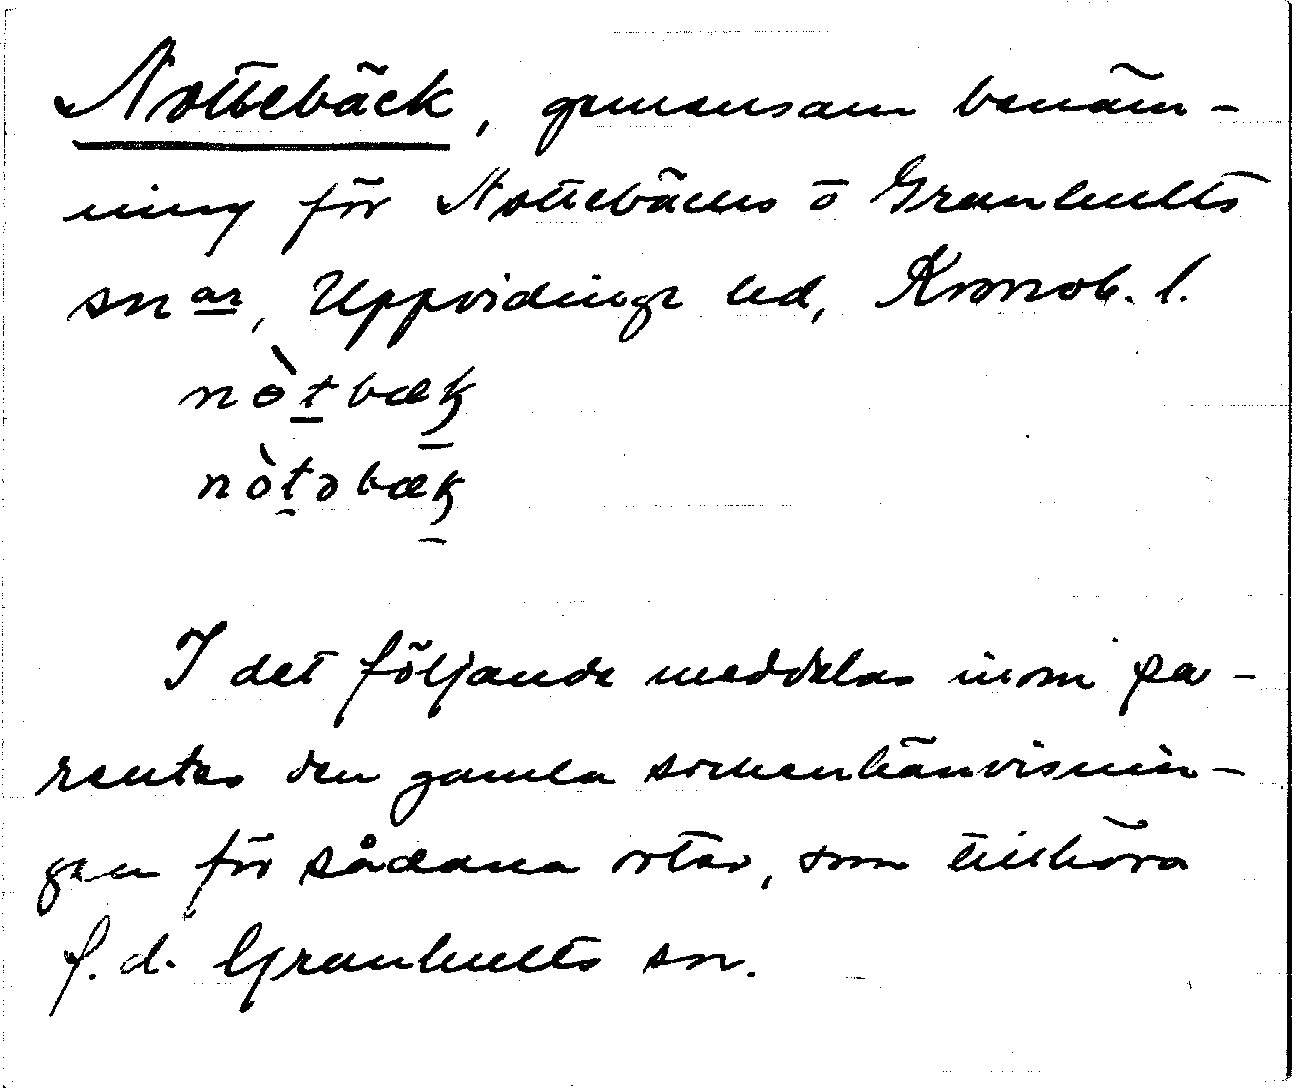 Nottebäck, gemensam benäm-
ning för Nottebäcks o Granhults
snar, Uppvidinge hd, Kronob. l.
nòtbæk
nòtəbæk
I det följande meddelas inom pa-
rentes den gamla sockenhänvisnin-
gen för sådana orter, som tillhöra
f.d. Granhults sn.